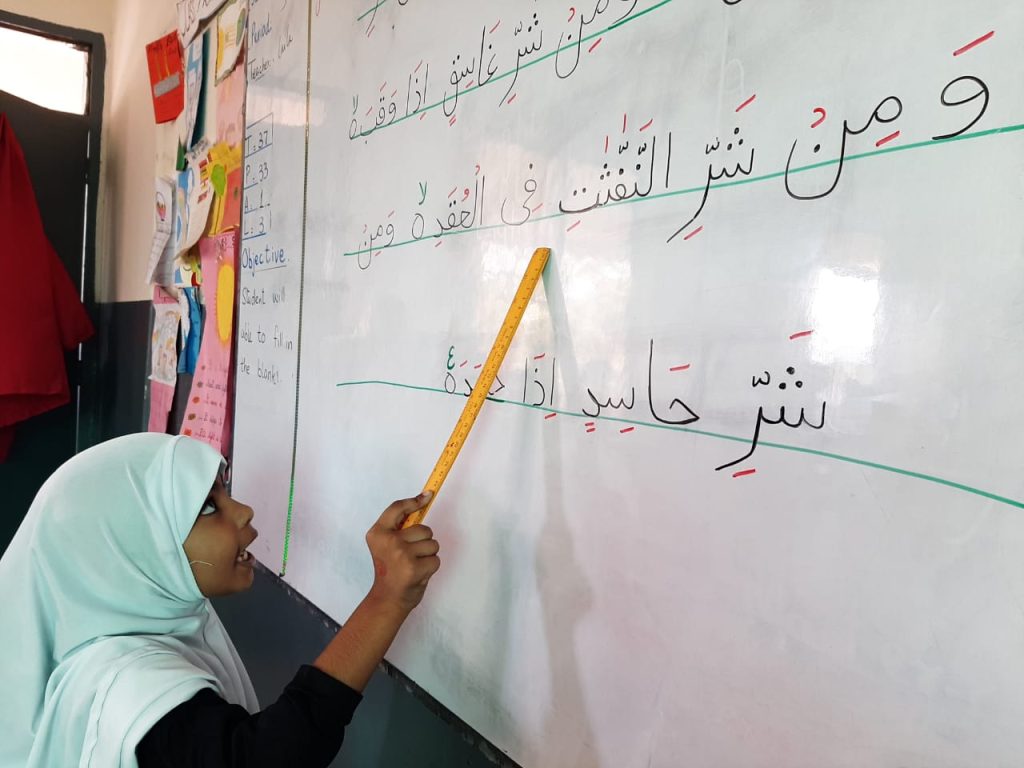 وَمِنْ شَرِّ غَاسِقٍ اِذَا وَقَبَ ۙ‏
وَ مِنْ شَرِّ النَّفّٰثٰتِ فِى الْعُقَدِ ۙ وَمِنْ
شَرِّ حَاسِدٍ اِذَا حَسَدَ ٤
Period
Teacher:
T = 37
P = 33
A = 1
L = 3
Objective
Student will
able to fill in
the blanks.